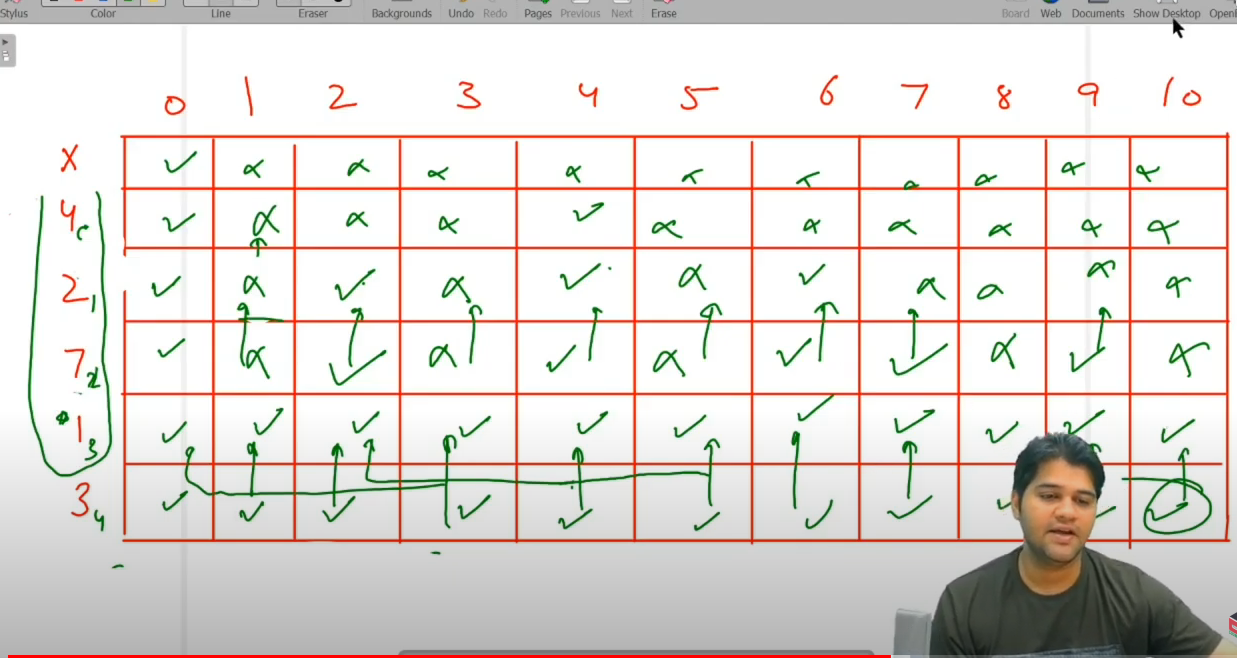 Stylus Color Line Eraser Backgrounds Undo Redo Pages Previous Next Erase Board Web Documents Show Desktop
0 1 2 3 4 5 6 7 8 9 10
X ✓ α α α α α α α α α α
4 0 ✓ α α α ✓ α α α α α α
2 1 ✓ α ✓ α ✓ α ✓ α α α α
7 2 ✓ α ✓ α ✓ α ✓ ✓ α ✓ α
1 3 ✓ ✓ ✓ ✓ ✓ ✓ ✓ ✓ ✓ ✓ ✓
3 4 ✓ ✓ ✓ ✓ ✓ ✓ ✓ ✓ ✓ ✓ ✓